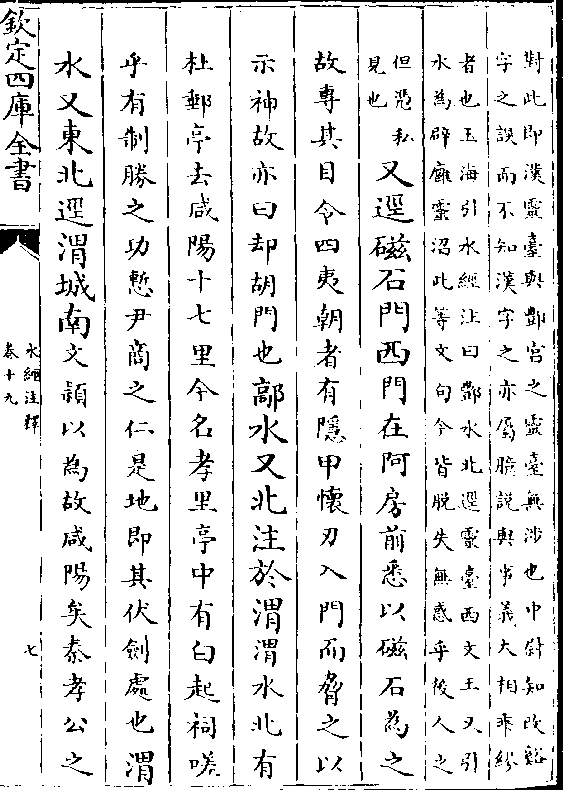 對此即漢靈臺與酆宮之靈臺無涉也中尉知改谿
字之誤而不知漢字之亦屬臆説與事義大相乖繆
者也玉海引水經注曰酆水北逕靈臺西文王又引
水為辟廱靈沼此等文句今皆脫失無惑乎後人之
但憑私
見也
又逕磁石門西門在阿房前悉以磁石為之
故專其目令四夷朝者有隱甲懷刃入門而脅之以
示神故亦曰却胡門也鄗水又北注於渭渭水北有
杜郵亭去咸陽十七里今名孝里亭中有白起祠嗟
乎有制勝之功慙尹商之仁是地即其伏劍處也渭
水又東北逕渭城南文穎以為故咸陽矣秦孝公之
欽定四庫全書
水經注釋
卷十九
七